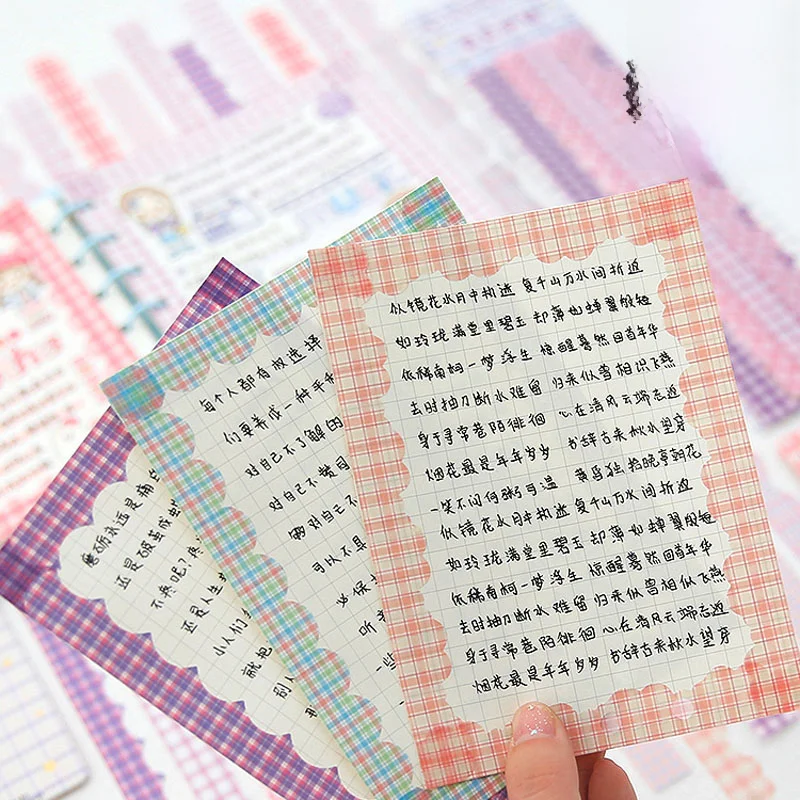 每个人都有权选择
们要养成一种平
对自己不了解的
对自己不赞同
够对自己不
可以不具
必保
听
一些
磨砺永远是痛
还是破茧成
不疼呢?疼
还是人生
小人们
就把
别人
似镜花水月中执迷 复千山万水间折返
如玲珑满堂里碧玉 却薄如蝉翼般短
依稀南柯一梦浮生 惊醒蓦然回首年华
去时抽刀断水难留 归来似曾相识飞燕
身于寻常巷陌徘徊 心在清风云端志远
烟花最是年年岁岁 书辞古来秋水望穿
一笑不问何粥可温 黄昏独拾晚亭朝花
似镜花水月中执迷 复千山万水间折返
如玲珑满堂里碧玉 却薄如蝉翼般短
依稀南柯一梦浮生 惊醒蓦然回首年华
去时抽刀断水难留 归来似曾相似飞燕
身于寻常巷陌徘徊 心在清风云端志远
烟花最是年年岁岁 书辞古来秋水望穿